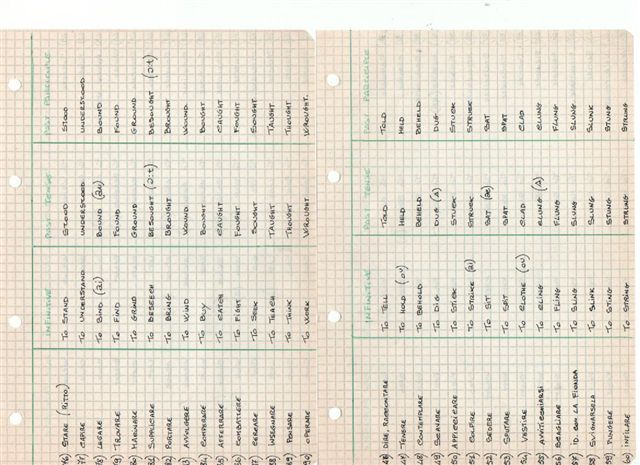 INFINITIVE PAST TENSE PAST PARTICIPLE
76) STARE (RITTO) TO STAND STOOD STOOD
77 CAPIRE TO UNDERSTAND UNDERSTOOD UNDERSTOOD
78) LEGARE TO BIND (ai) BOUND (au) BOUND
79 TROVARE TO FIND FOUND FOUND
80) MACINARE TO GRIND GROUND GROUND
SUPPLICARE TO BESEECH BESOUGHT (ɔ:t) BESOUGHT (ɔ:t)
PORTARE TO BRING BROUGHT BROUGHT
AVVOLGERE TO WIND WOUND WOUND
COMPERARE TO BUY BOUGHT BOUGHT
AFFERRARE TO CATCH CAUGHT CAUGHT
COMBATTERE TO FIGHT FOUGHT FOUGHT
CERCARE TO SEEK SOUGHT SOUGHT
INSEGNARE TO TEACH TAUGHT TAUGHT
PENSARE TO THINK THOUGHT THOUGHT
OPERARE TO WORK WROUGHT WROUGHT
INFINITIVE PAST TENSE PAST PARTICIPLE
DIRE, RACCONTARE TO TELL TOLD TOLD
TENERE TO HOLD (ou) HELD HELD
48) CONTEMPLARE TO BEHOLD BEHELD BEHELD
49 SCAVARE TO DIG DUG (ʌ) DUG
50 APPICCICARE TO STICK STUCK STUCK
51 COLPIRE TO STRIKE (ai) STRUCK STRUCK
52) SEDERE TO SIT SAT (æ) SAT
53) SPUTARE TO SPIT SPAT SPAT
54 VESTIRE TO CLOTHE (ou) CLAD CLAD
55 AVVITICCHIARSI TO CLING CLUNG (ʌ) CLUNG
56 SCAGLIARE TO FLING FLUNG FLUNG
57 ID. CON LA FIONDA TO SLING SLUNG SLUNG
58 SVIGNARSELA TO SLINK SLUNK SLUNK
59 PUNGERE TO STING STUNG STUNG
60 INFILARE TO STRING STRUNG STRUNG